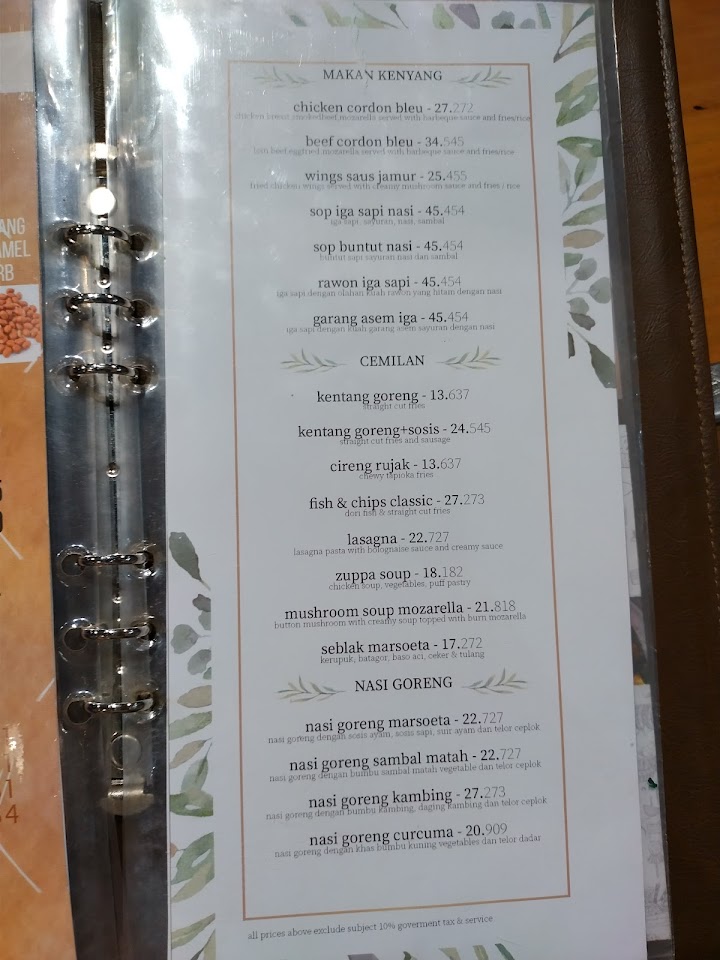 ANG
AMEL
RB
MAKAN KENYANG
chicken cordon bleu - 27.272
chicken breast, smokedbeef, mozarella served with barbeque sauce and fries/rice
beef cordon bleu - 34.545
served with barbeque sauce and fries/rice
wings saus jamur - 25.455
fried chicken wings served with creamy mushroom sauce and fries / rice
sop iga sapi nasi - 45.454
iga sapi, sayuran, nasi, sambal
sop buntut nasi - 45.454
buntut sapi sayuran nasi dan sambal
rawon iga sapi - 45.454
iga sapi dengan olahan kuah rawon yang hitam dengan nasi
garang asem iga - 45.454
iga sapi dengan kuah garang asem sayuran dengan nasi
CEMILAN
kentang goreng - 13.637
straight cut fries
kentang goreng+sosis - 24.545
straight cut fries and sausage
cireng rujak - 13.637
chewy tapioka fries
fish & chips classic - 27.273
dori fish & straight cut fries
lasagna - 22.727
lasagna pasta with bolognaise sauce and creamy sauce
zuppa soup - 18.182
chicken soup, vegetables, puff pastry
mushroom soup mozarella - 21.818
button mushroom with creamy soup topped with burn mozarella
seblak marsoeta - 17.272
kerupuk, batagor, baso aci, ceker & tulang
NASI GORENG
nasi goreng marsoeta - 22.727
nasi goreng dengan sosis ayam, sosis sapi, suir ayam dan telor ceplok
nasi goreng sambal matah - 22.727
nasi goreng dengan bumbu sambal matah vegetable dan telor ceplok
nasi goreng kambing - 27.273
nasi goreng dengan bumbu kambing, daging kambing dan telor ceplok
nasi goreng curcuma - 20.909
nasi goreng dengan khas bumbu kuning vegetables dan telor dadar
all prices above exclude subject 10% goverment tax & service